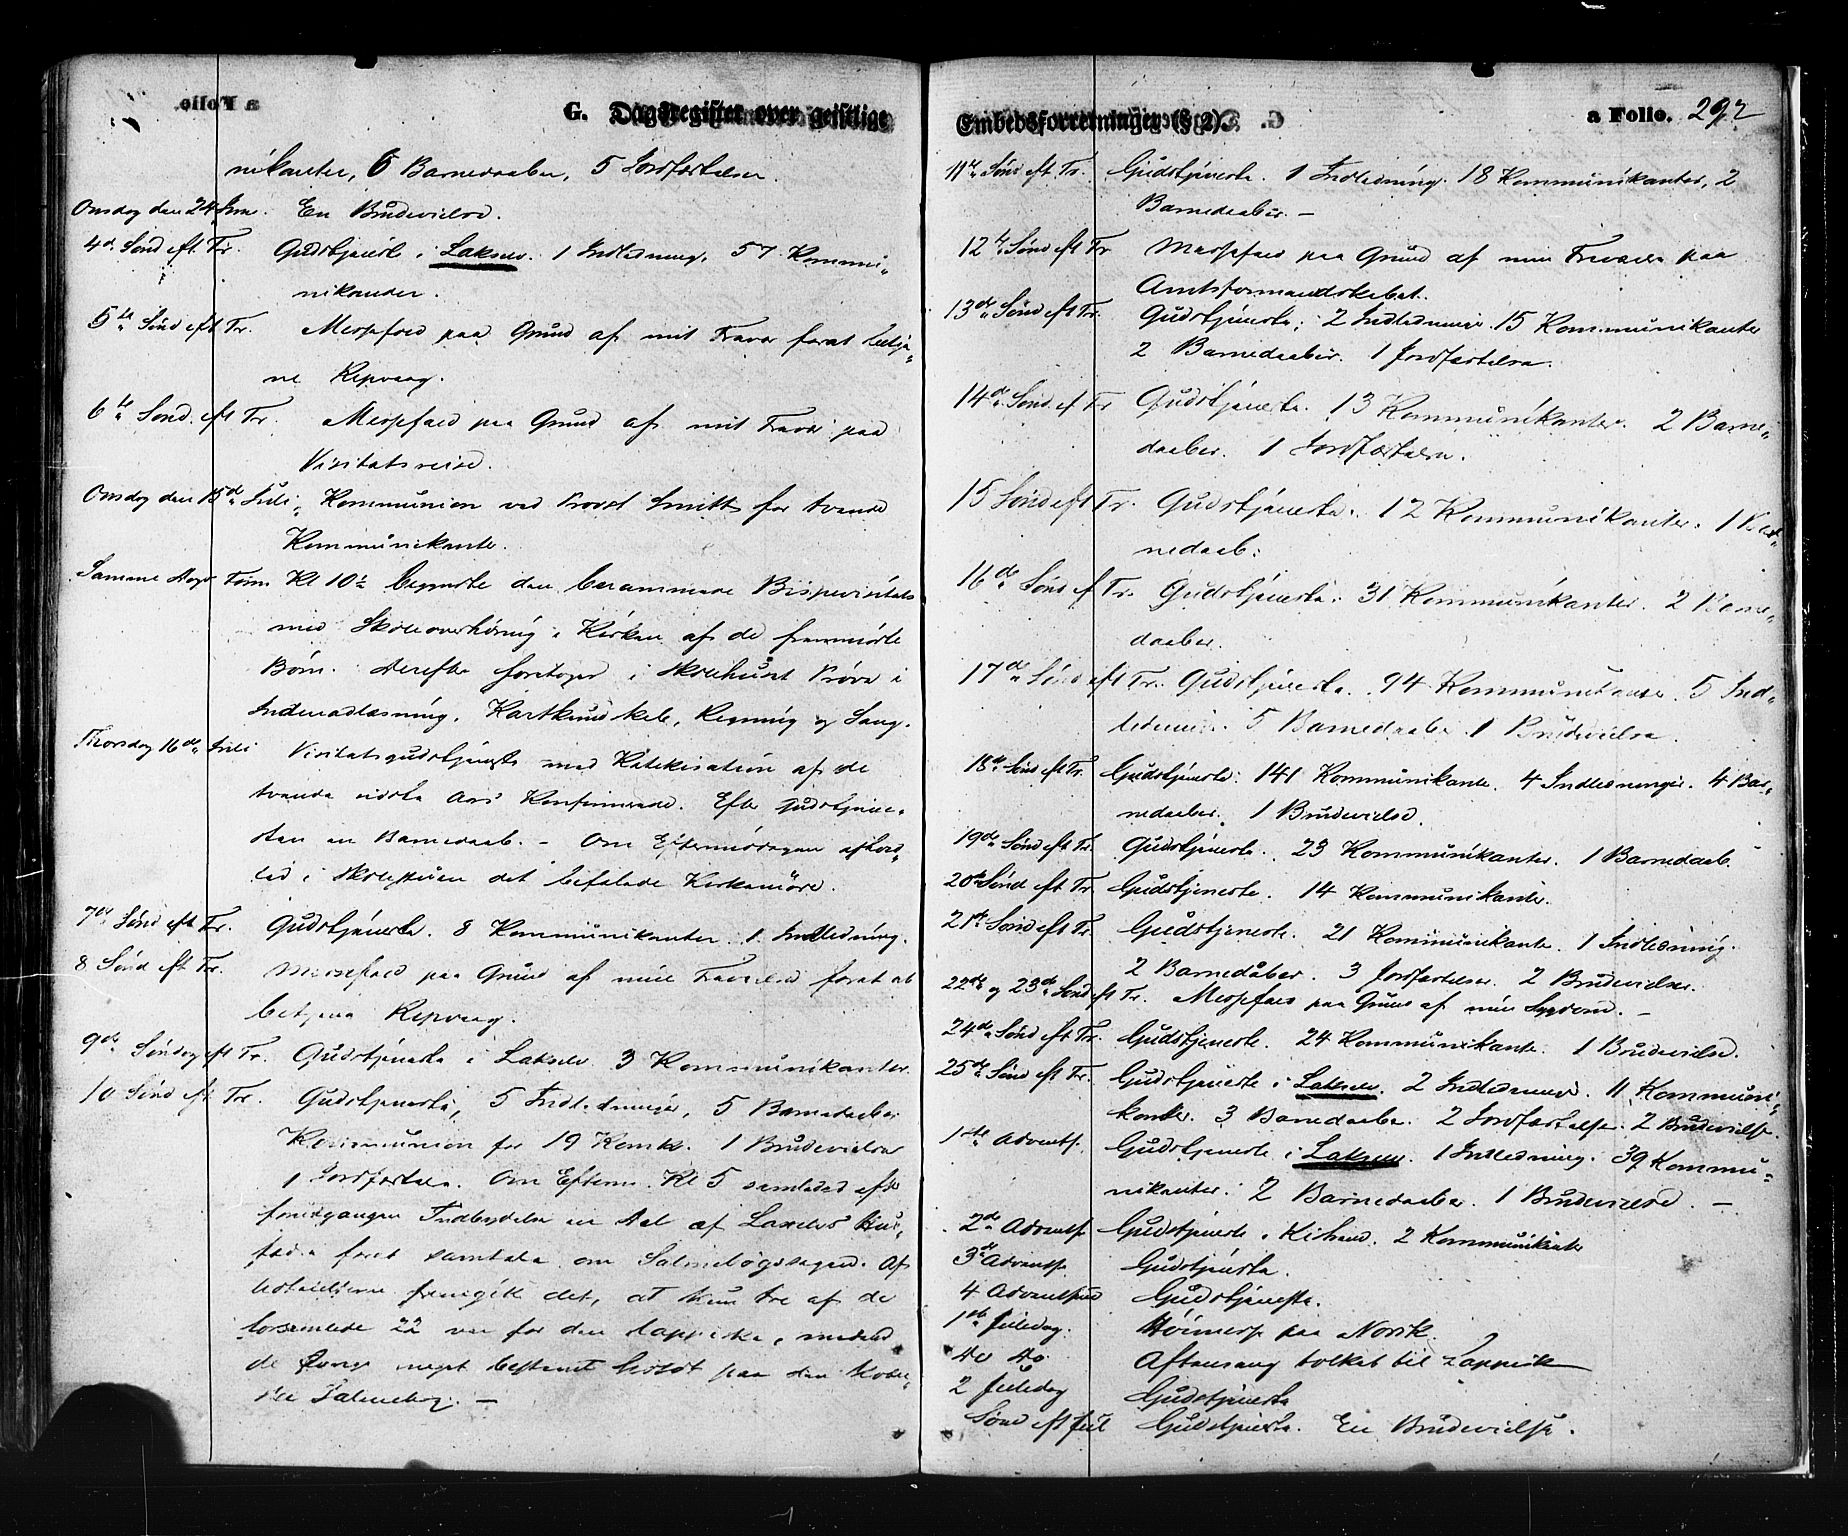 G. Dagsregister over geistlige
nikanter, 6 Barnedaaber, 5 Jordfæstelser.
Onsdag den 24 Juni. En Brudevielse.
4de Sønd eft. Tr. Gudstjeneste i Lakselv. 1 Indledning. 57 Kommu„
nikanter.
5te Sønd eft Tr. Messefald paa Grund af mit Fravær forat betje„
ne Repvaag.
6te Sønd. eft Tr. Messefald paa Grund af mit Fravær paa
Visitatsreise.
Onsdag den 15de Juli Kommunion ved Provst Smitt for tvende
Kommunikanter.
Samme Dags Form Kl 10½ begyndte den berammede Bispevisitats
med Skoleoverhøring i Kirken af de fremmødte
Børn. Derefter foretoges i Skolehuset Prøve i
Indenadlæsning, Kartkundskab, Regning og Sang.
Thorsdag 16de Juli Visitatsgudstjeneste med Katekisation af de
tvende sidste Aars Konfirmerede. Efter Gudstjene„
sten en Barnedaab. – Om Eftermiddagen afhold„
tes i Skolestuen det befalede Kirkemøde.
7de Sønd eft Tr. Gudstjeneste. 8 Kommunikanter. 1 Indledning.
8 Sønd eft Tr. Messefald paa Grund af min Fraværelse forat at
betjene Repvaag.
9de Søndag eft Tr. Gudstjeneste i Lakselv 3 Kommunikanter.
10 Sønd eft Tr. Gudstjeneste, 5 Indledninger, 5 Barnedaaber
Kommunion for 19 Komk. 1 Brudevielse
1 Jordfæstelse. Om Efterm. Kl 5 samledes efter
foregangen Indbydelse en Del af Laxelvs Hus„
fædre foret samtale om Salmebogssagen. Af
det, at kun tre af de
forsamlede 22 var for den lappiske, medens
de Øvrige meget bestemt holdt paa den
Salmebog. –
Embedsforretninger (§ 2).
a Folio. 292
11te Sønd eft. Tr. Gudstjeneste. 1 Indledning. 18 Kommunikanter, 2
Barnedaaber. –
12te Sønd eft Tr Messefald paa Grund af min Fravær paa
Amtsformandskabet.
13de Sønd eft Tr. Gudstjeneste; 2 Indledninge. 15 Kommunikanter
2 Barnedaaber. 1 Jordfæstelse.
14de Sønd. ef Tr Gudstjeneste. 13 Kommunikanter. 2 Barne„
daaber. 1 Jordfæstelse.
15 Sønd eft Tr. Gudstjeneste. 12 Kommunikanter. 1 Bar„
nedaab.
16de Sønd ef Tr. Gudstjeneste. 31 Kommunikanter. 2 Barne„
daaber.
17de Sønd eft Tr. Gudstjeneste. 94 Kommunikanter. 5 Ind„
ledninger. 5 Barnedaaber 1 Brudevielse.
18de Sønd eft Tr. Gudstjeneste. 141 Kommunikante. 4 Indledninger. 4 Bar„
nedaaber. 1 Brudevielse.
19de Sønd eft Tr. Gudstjeneste. 23 Kommunikanter. 1 Barnedaab.
20de Sønd eft Tr. Gudstjeneste. 14 Kommunikanter.
21de Sønd eft Tr. Gudstjeneste. 21 Kommunikante. 1 Indledning.
2 Barnedåber. 3 Jordfæstelser. 2 Brudevielser.
22de og 23de Sønd eft Tr. Messefald paa Grund af min Sygdom. –
24de Sønd eft Tr. Gudstjeneste. 24 Kommunikante. 1 Brudevielse.
25de Sønd eft Tr. Gudstjeneste i Lakselv. 2 Indledninge. 11 Kommuni„
kanter. 3 Barnedaaber. 2 Jordfæstelse. 2 Brudevielse.
1ste Adventss. Gudstjeneste i Lakselv. 1 Indledning. 39 Kommu„
nikanter. 2 Barnedaaber. 1 Brudevielse. –
2de Adventss. Gudstjeneste i Kistrand. 2 Kommunikanter
3de Adventss. Gudstjeneste.
4 Adventssønd Gudstjeneste.
1ste Juledag. Høimesse paa Norsk.
Do Do. Aftensang tolket til Lappisk
2 Juledag Gudstjeneste
Sønd eft Jul Gudstjeneste. En Brudevielse.